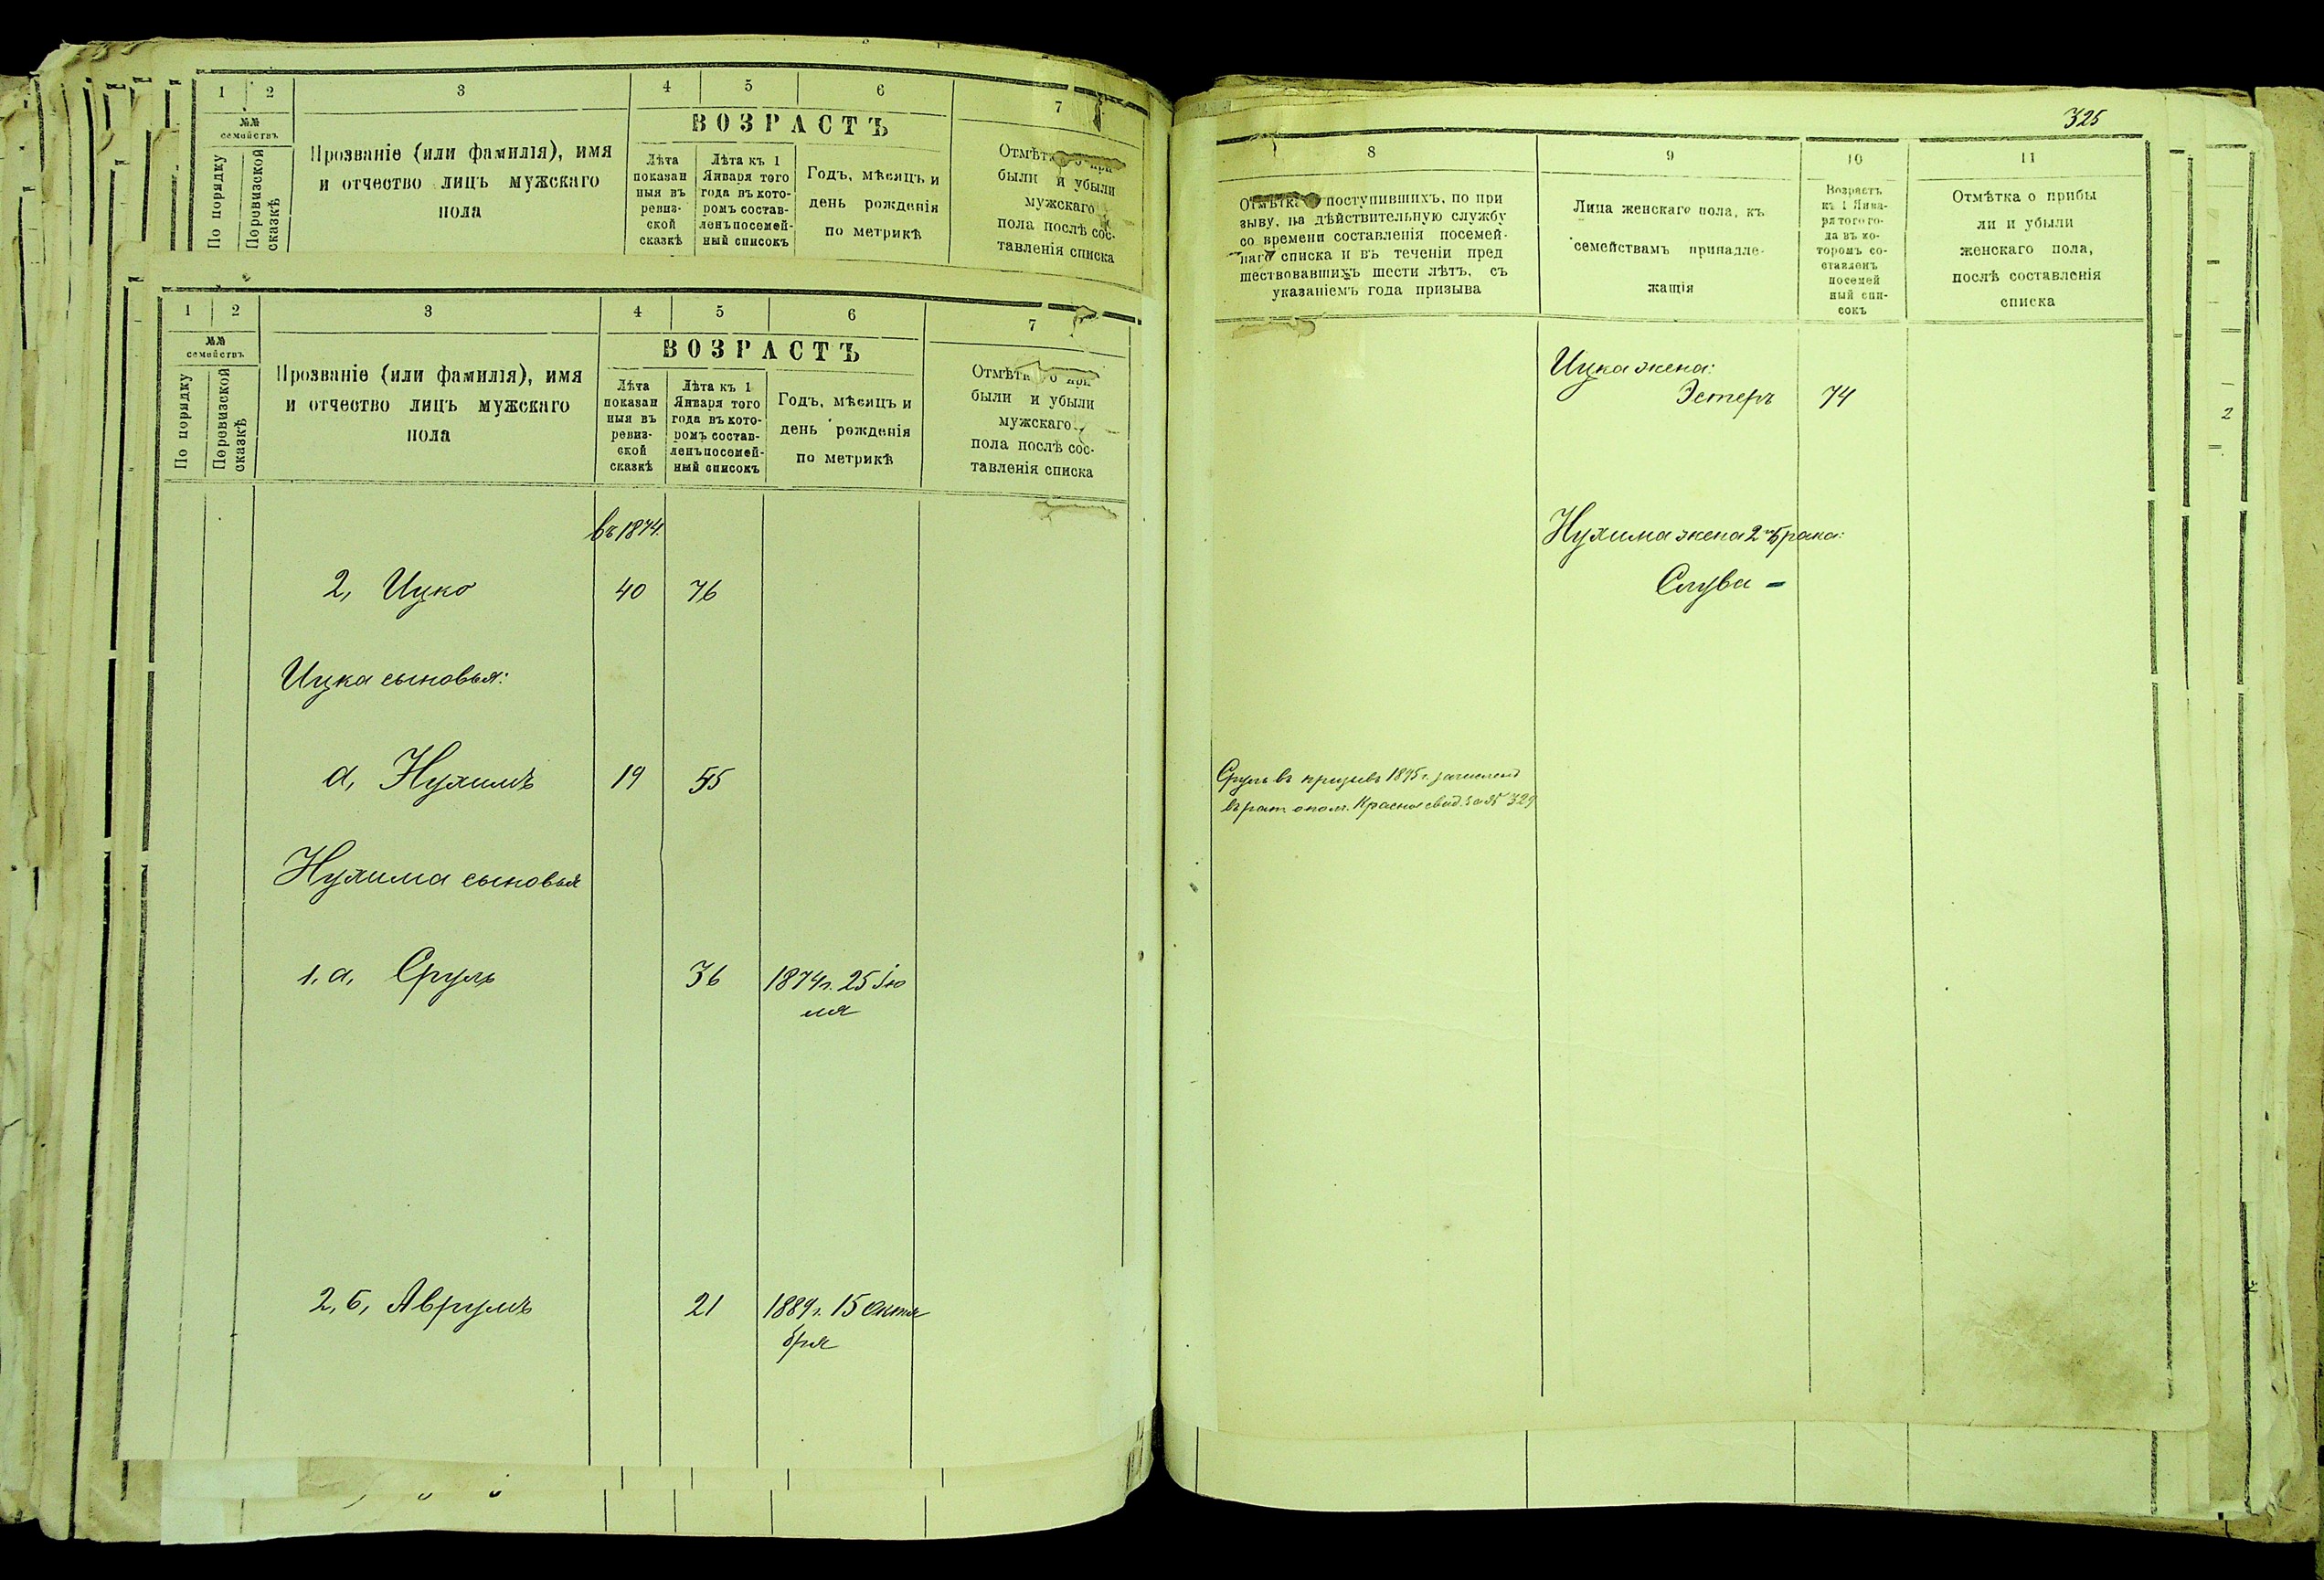 1 2 3 4 5 6 7
№№
семействъ
По порядку
По ревизской
сказкѣ
Прозваніе (или фамилія), имя
и отчество лицъ мужскаго
пола
ВОЗРАСТЪ
Лѣта
показан
ныя въ
ревиз-
ской
сказкѣ
Лѣта къ 1
Января того
года въ кото-
ромъ состав-
ленъ посемей-
ный списокъ
Годъ, мѣсяцъ и
день рожденія
по метрикѣ
были и убыли
мужскаго
пола послѣ сос-
тавленія списка
1 2 3 4 5 6 7
№№
семействъ
По порядку
По ревизской
сказкѣ
Прозваніе (или фамилія), имя
и отчество лицъ мужскаго
пола
ВОЗРАСТЪ
Лѣта
показан
ныя въ
ревиз-
ской
сказкѣ
Лѣта къ 1
Января того
года въ кото-
ромъ состав-
ленъ посемей-
ный списокъ
Годъ, мѣсяцъ и
день рожденія
по метрикѣ
были и убыли
мужскаго
пола послѣ сос-
тавленія списка
въ 1874.
2, Ицко 40 76
Ицка сыновья:
а, Нухимъ 19 55
Нухима сыновья
1, а, Сруль 36 1874 г. 25 Ію
ля
2, б, Аврумъ 21 1889 г. 15 Октя
бря
325
8 9 10 11
Отмѣтка поступившихъ, по при
зыву, на дѣйствительную службу
со времени составленія посемей-
наго списка и въ теченіи пред
шествовавшихъ шести лѣтъ, съ
указаніемъ года призыва
Лица женскаго пола, къ
семействамъ принадле-
жащія
Возрастъ
къ 1 Янва-
ря того го-
да въ ко-
торомъ со-
ставленъ
посемей
ный спи-
сокъ
Отмѣтка о прибы
ли и убыли
женскаго пола,
послѣ составленія
списка
Ицка жена:
Эстеръ 74
Нухима жена 2 брака:
Слува -
Сруль въ призывъ 1895 г. зачисленъ
въ рат. опол. Красное свид. за № 329
2